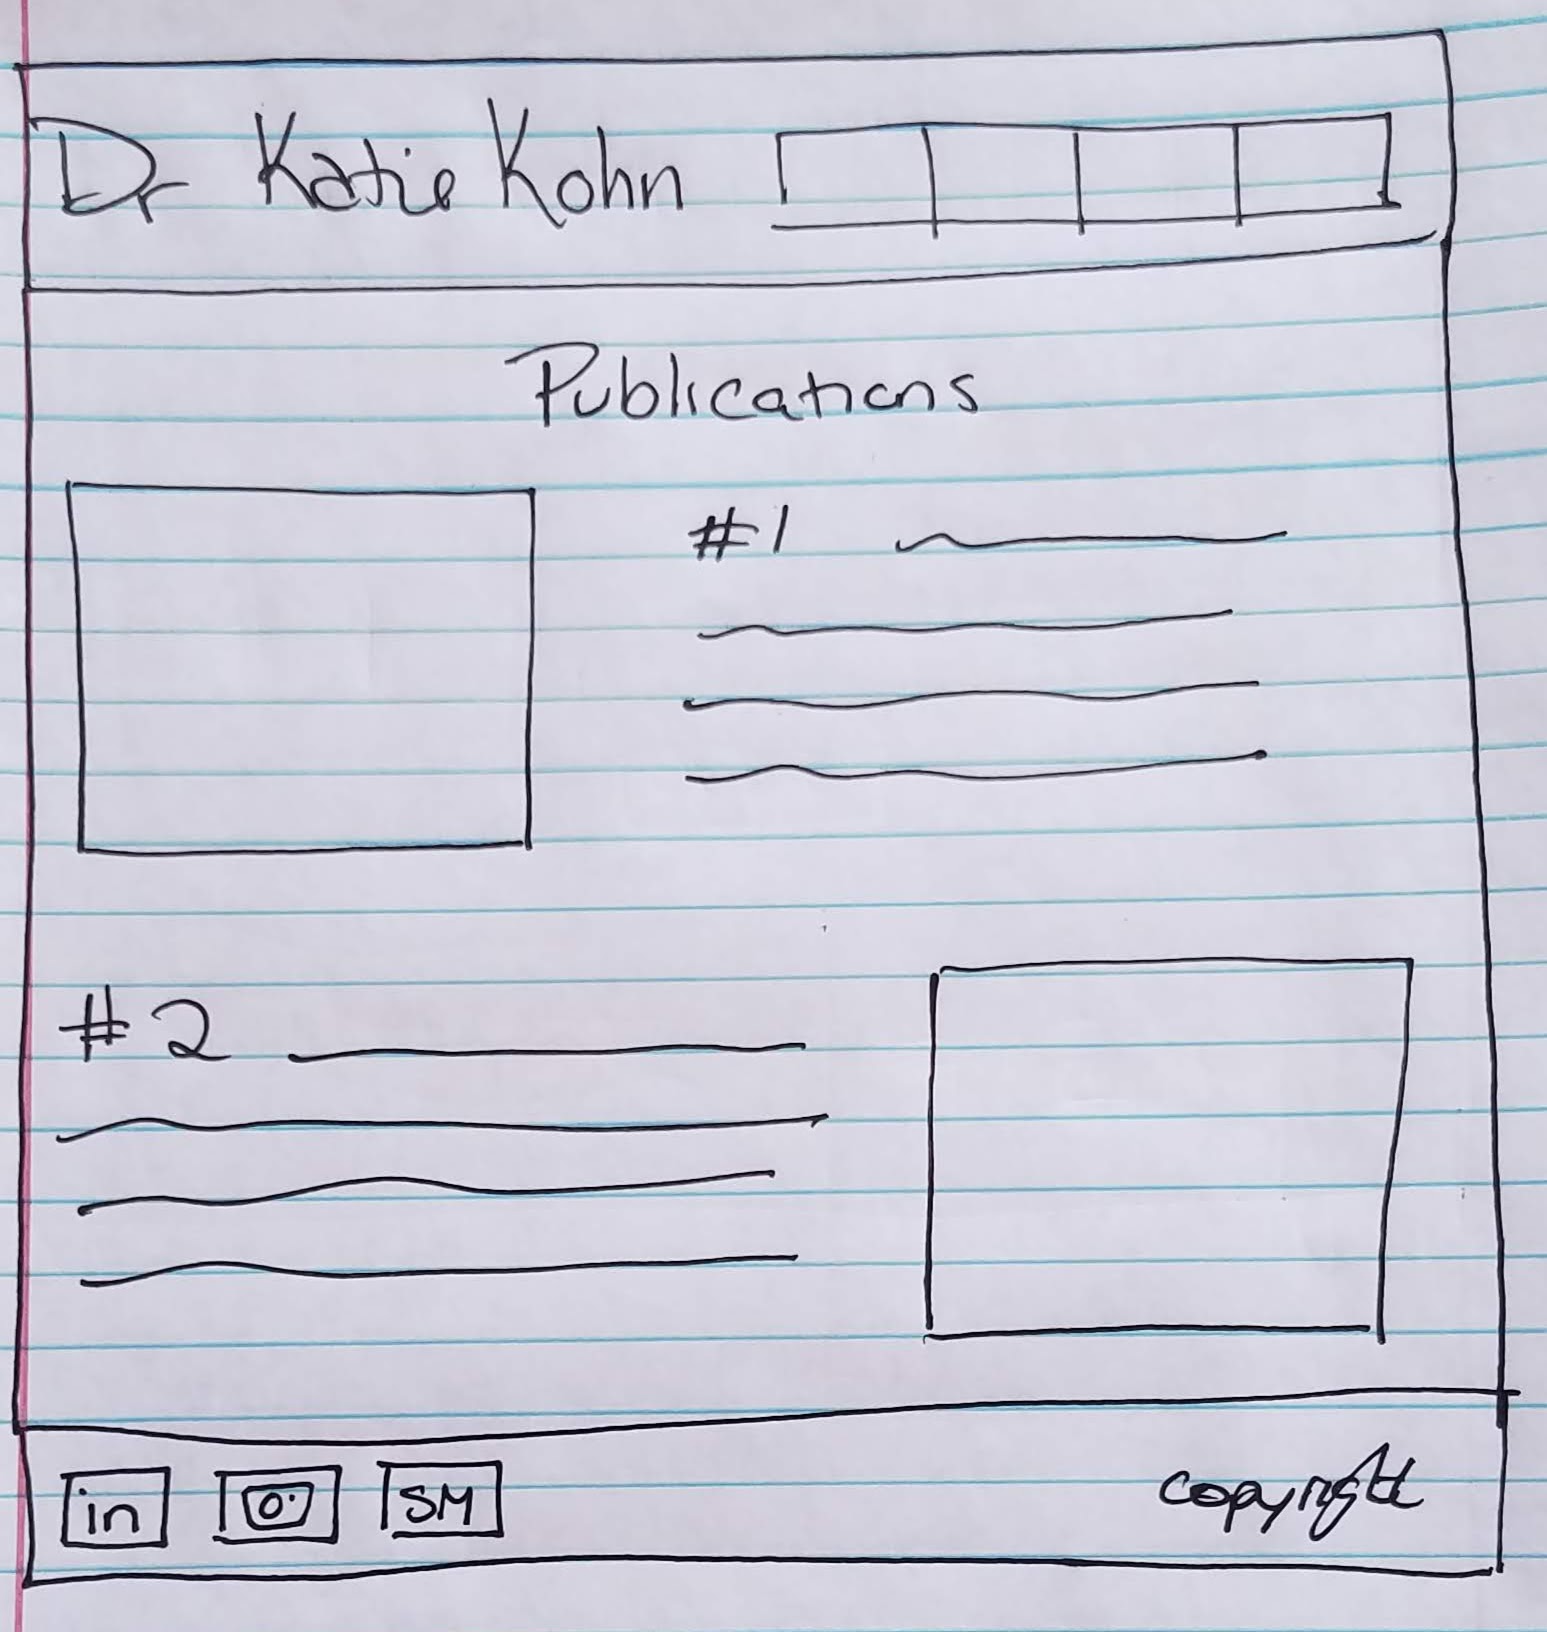 Dr Katie Kohn
Publications
#1
#2
in
SM
copyright